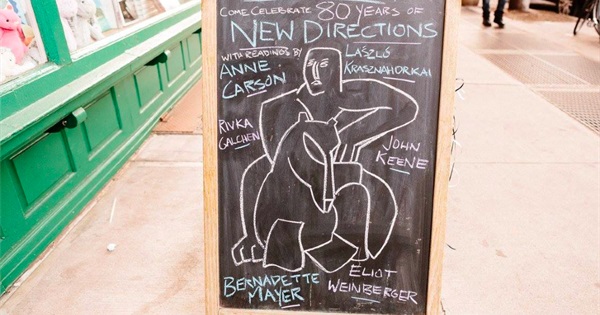 COME CELEBRATE 80 YEARS OF
NEW DIRECTIONS
WITH READINGS BY
ANNE
CARSON
LÁSZLÓ
KRASZNAHORKAI
RIVKA
GALCHEN
JOHN
KEENE
BERNADETTE
MAYER
ELIOT
WEINBERGER